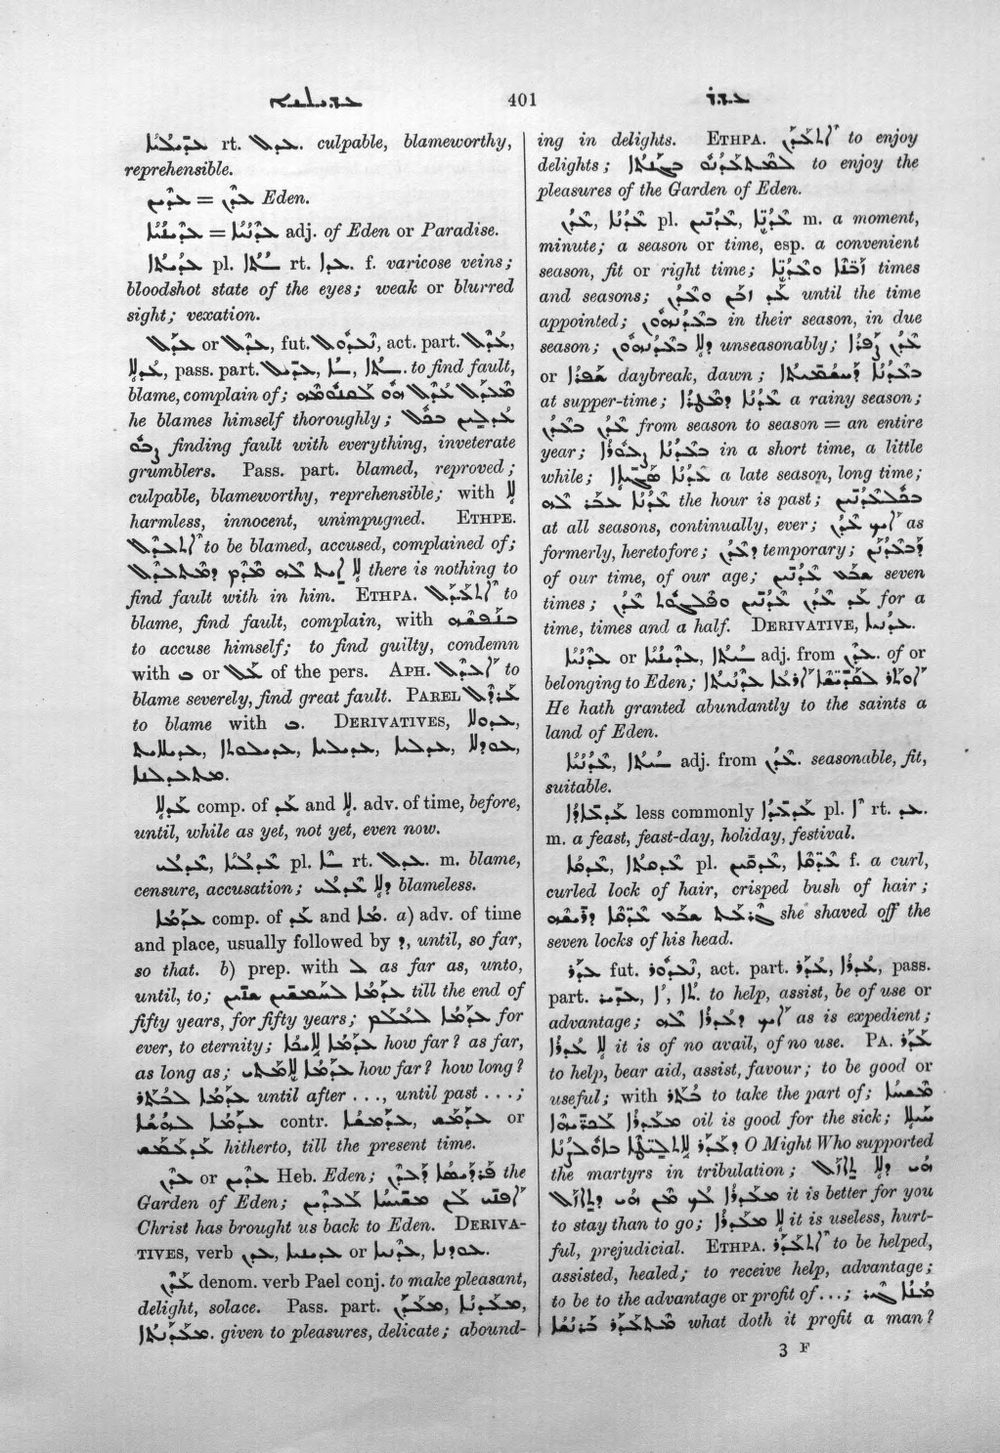 ܥܕܝܠܝܐ 401 ܥܕܪ
ܥܕܝܠܝܐ rt. ܥܕܠ. culpable, blameworthy,
reprehensible.
ܥܕܝܢ = ܥܕܢ Eden.
ܥܕܝܢܝܐ = ܥܕܢܝܐ adj. of Eden or Paradise.
ܥܕܝܬܐ pl. rt. ܥܕܐ. f. varicose veins;
bloodshot state of the eyes; weak or blurred
sight; vexation.
ܥܕܠ or ܥܕܠ, fut. ܢܥܕܘܠ, act. part. ܥܕܠ,
ܥܕܠܐ, pass. part. ܥܕܝܠ, to find fault,
blame, complain of; ܡܥܕܠ ܥܕܠ ܗܘ ܠܩܢܘܡܗ
he blames himself thoroughly; ܥܕܠܝܢ ܒܟܠ
finding fault with everything, inveterate
grumblers. Pass. part. blamed, reproved;
culpable, blameworthy, reprehensible; with ܠܐ
harmless, innocent, unimpugned. ETHPE.
ܐܬܥܕܠ to be blamed, accused, complained of;
ܠܐ ܐܝܬ ܠܗ ܡܕܡ ܕܡܬܥܕܠ there is nothing to
find fault with in him. ETHPA. ܐܬܥܕܠ to
blame, find fault, complain, with ܒܢܦܫܗ
to accuse himself; to find guilty, condemn
with ܒ or ܥܠ of the pers. APH. ܐܥܕܠ to
blame severely, find great fault. PAREL ܥܪܕܠ
to blame with ܒ. DERIVATIVES, ܥܕܘܠܐ,
ܥܘܕܠܐ, ܥܕܠܝܐ, ܥܕܝܠܝܐ, ܥܕܝܠܘܬܐ, ܥܕܝܠܐܝܬ,
ܡܬܥܕܠܢܐ.
ܥܕܠܐ comp. of ܥܕ and ܠܐ. adv. of time, before,
until, while as yet, not yet, even now.
ܥܕܠܝ, ܥܕܠܝܐ pl. rt. ܥܕܠ. m. blame,
censure, accusation; ܕܠܐ ܥܕܠܝ blameless.
ܥܕܡܐ comp. of ܥܕ and ܡܐ. a) adv. of time
and place, usually followed by ܕ, until, so far,
so that. b) prep. with ܠ as far as, unto,
until, to; ܥܕܡܐ ܠܚܡܫܝܢ ܫܢܝܢ till the end of
fifty years, for fifty years; ܥܕܡܐ ܠܥܠܡ for
ever, to eternity; ܥܕܡܐ ܠܐܝܟܐ how far? as far,
as long as; ܥܕܡܐ ܠܐܡܬܝ how far? how long?
ܥܕܡܐ ܠܒܬܪ until after . . ., until past . . .;
ܥܕܡܐ ܠܗܫܐ contr. ܥܕܡܫܐ, ܥܕܡܫ or
ܥܕܟܡܫ hitherto, till the present time.
ܥܕܢ or ܥܕܝܢ Heb. Eden; ܦܪܕܝܣܐ ܕܥܕܢ the
Garden of Eden; ܐܦܢܝ ܠܢ ܡܫܝܚܐ ܠܥܕܝܢ
Christ has brought us back to Eden. DERIVA-
TIVES, verb ܥܕܢ, ܥܕܝܢܝܐ or ܥܕܢܝܐ, ܥܘܕܢܐ.
ܥܕܢ denom. verb Pael conj. to make pleasant,
delight, solace. Pass. part. ܡܥܕܢ, ܡܥܕܢܐ,
ܡܥܕܢܬܐ. given to pleasures, delicate; abound-
ing in delights. ETHPA. ܐܬܥܕܢ to enjoy
delights; ܠܡܬܥܕܢܘ ܒܓܢܬܐ to enjoy the
pleasures of the Garden of Eden.
ܥܕܢ, ܥܕܢܐ pl. ܥܕܢܝܢ, ܥܕܢܐ m. a moment,
minute; a season or time, esp. a convenient
season, fit or right time; ܙܒܢܐ ܘܥܕܢܐ times
and seasons; ܥܕ ܙܒܢ ܘܥܕܢ until the time
appointed; ܒܥܕܢܗܘܢ in their season, in due
season; ܕܠܐ ܒܥܕܢܗܘܢ unseasonably; ܥܕܢ ܨܦܪܐ
or ܫܦܪܐ daybreak, dawn; ܒܥܕܢܐ ܕܚܫܡܝܬܐ
at supper-time; ܥܕܢܐ ܕܡܛܪܐ a rainy season;
ܥܕܢ ܒܥܕܢ from season to season = an entire
year; ܒܥܕܢܐ ܙܥܘܪܐ in a short time, a little
while; ܥܕܢܐ ܣܓܝܐܐ a late season, long time;
ܥܕܢܐ ܥܒܪ ܠܗ the hour is past; ܒܟܠܥܕܢܝܢ
at all seasons, continually, ever; ܐܝܟ ܥܕܢ as
formerly, heretofore; ܕܥܕܢ temporary; ܕܒܥܕܢܢ
of our time, of our age; ܫܒܥ ܥܕܢܝܢ seven
times; ܥܕ ܥܕܢ ܥܕܢܝܢ ܘܦܠܓܘܬ ܥܕܢ for a
time, times and a half. DERIVATIVE, ܥܕܢܝܐ.
ܥܕܢܝܐ or ܥܕܝܢܝܐ, adj. from ܥܕܢ. of or
belonging to Eden; ܐܘܬܪ ܠܩܕܝܫܐ ܐܪܥܐ ܥܕܢܝܬܐ
He hath granted abundantly to the saints a
land of Eden.
ܥܕܢܝܐ, adj. from ܥܕܢ. seasonable, fit,
suitable.
ܥܕܥܐܕܐ less commonly ܥܕܥܕܐ pl. rt. ܥܕ.
m. a feast, feast-day, holiday, festival.
ܥܕܩܐ, ܥܕܩܬܐ pl. ܥܕܩܝܢ, ܥܕܩܐ f. a curl,
curled lock of hair, crisped bush of hair;
ܓܪܥܬ ܫܒܥ ܥܕܩܐ ܕܪܝܫܗ she shaved off the
seven locks of his head.
ܥܕܪ fut. ܢܥܕܘܪ, act. part. ܥܕܪ, ܥܕܪܐ, pass.
part. ܥܕܝܪ, to help, assist, be of use or
advantage; ܐܝܟ ܕܥܕܪܐ ܠܗ as is expedient;
ܠܐ ܥܕܪܐ it is of no avail, of no use. PA. ܥܕܪ
to help, bear aid, assist, favour; to be good or
useful; with ܒܬܪ to take the part of; ܡܫܚܐ
ܡܥܕܪܐ ܠܟܪܝܗܐ oil is good for the sick; ܚܝܠܐ
ܕܥܕܪ ܠܐܬܠܝܛܐ ܒܐܘܠܨܢܐ O Might Who supported
the martyrs in tribulation; ܗܘ ܕܠܐ ܬܐܙܠ
ܡܥܕܪܐ ܠܟ ܡܢ ܗܘ ܕܬܐܙܠ it is better for you
to stay than to go; ܠܐ ܡܥܕܪܐ it is useless, hurt-
ful, prejudicial. ETHPA. ܐܬܥܕܪ to be helped,
assisted, healed; to receive help, advantage;
to be to the advantage or profit of . . .; ܡܢܐ ܓܝܪ
ܡܬܥܕܪ ܒܪܢܫܐ what doth it profit a man?
3 F